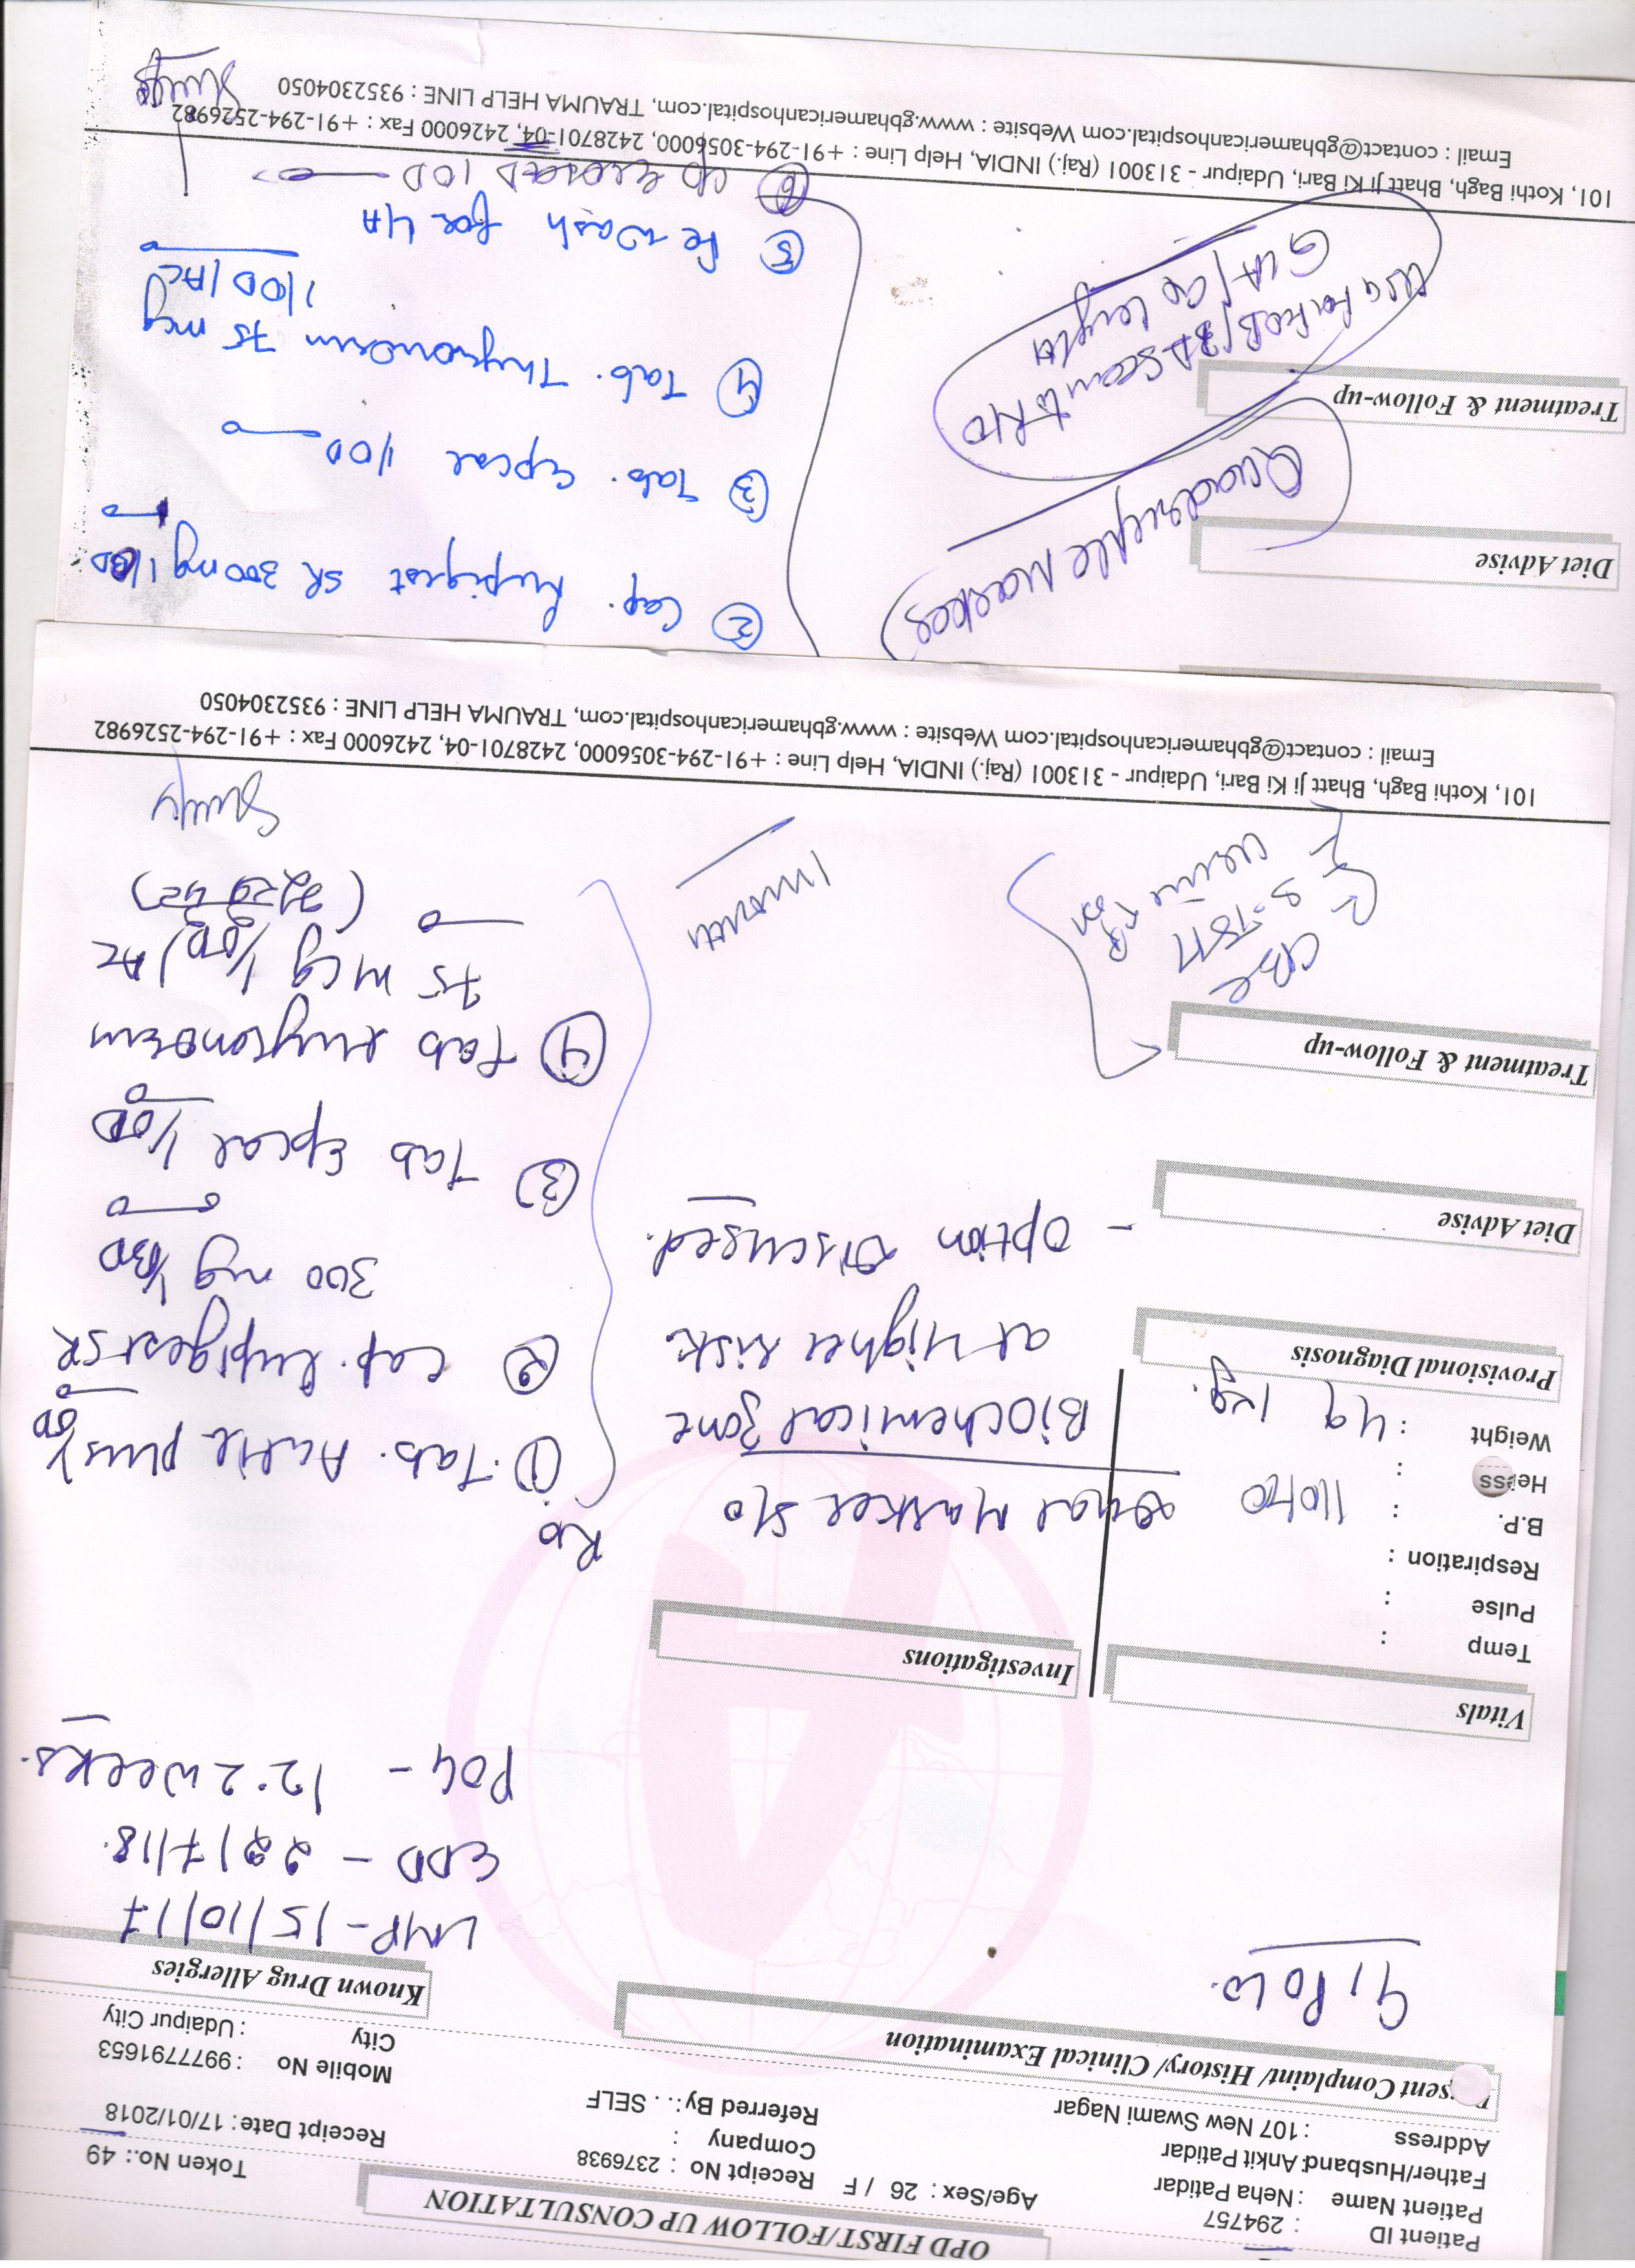 OPD FIRST/FOLLOW UP CONSULTATION
Patient ID : 294757
Token No.: 49
Patient Name : Neha Patidar
Age/Sex : 26 / F
Receipt No : 2376938
Receipt Date : 17/01/2018
Father/Husband: Ankit Patidar
Company :
Mobile No : 9977791653
Address : 107 New Swami Nagar
Referred By:. . . SELF
City : Udaipur City
sent Complaint/ History/ Clinical Examination
Known Drug Allergies
G1P0L0.
LMP - 15/10/17
EDD - 22/7/18.
POG - 12.2 weeks.
Vitals
Temp :
Pulse :
Respiration :
B.P. : 110/70
Weight : 49 kg.
Investigations
Dual Marker S/O
Biochemical zone
at Higher risk
- option discussed.
Provisional Diagnosis
Diet Advise
Treatment & Follow-up
CBC
S. TSH
Urine
1 month
Rx
① Tab. plus 1/OD
② Cap. Lupigest SR
300 mg 1/BD
③ Tab Epcal 1/OD
④ Tab Thyronorm
75 mcg 1/OD/AC
101, Kothi Bagh, Bhatt Ji Ki Bari, Udaipur - 313001 (Raj.) INDIA, Help Line : +91-294-3056000, 2428701-04, 2426000 Fax : +91-294-2526982
Email : contact@gbhamericanhospital.com Website : www.gbhamericanhospital.com, TRAUMA HELP LINE : 9352304050
Quadruple Marker
Diet Advise
Treatment & Follow-up
USG for
② Cap. Lupigest SR 300mg 1/BD
③ Tab. Epcal 1/OD
④ Tab. Thyronorm 75 mcg
1/OD/AC
⑤ wash for L/A
⑥
101, Kothi Bagh, Bhatt Ji Ki Bari, Udaipur - 313001 (Raj.) INDIA, Help Line : +91-294-3056000, 2428701-04, 2426000 Fax : +91-294-2526982
Email : contact@gbhamericanhospital.com Website : www.gbhamericanhospital.com, TRAUMA HELP LINE : 9352304050